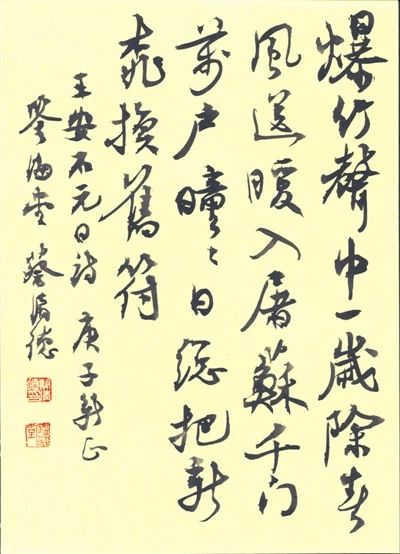 爆竹聲中一歲除春
風送暖入屠蘇千门
萬戶曈々日總把新
桃換舊符
王安石元日詩 庚子新正
海堂 蔡 德